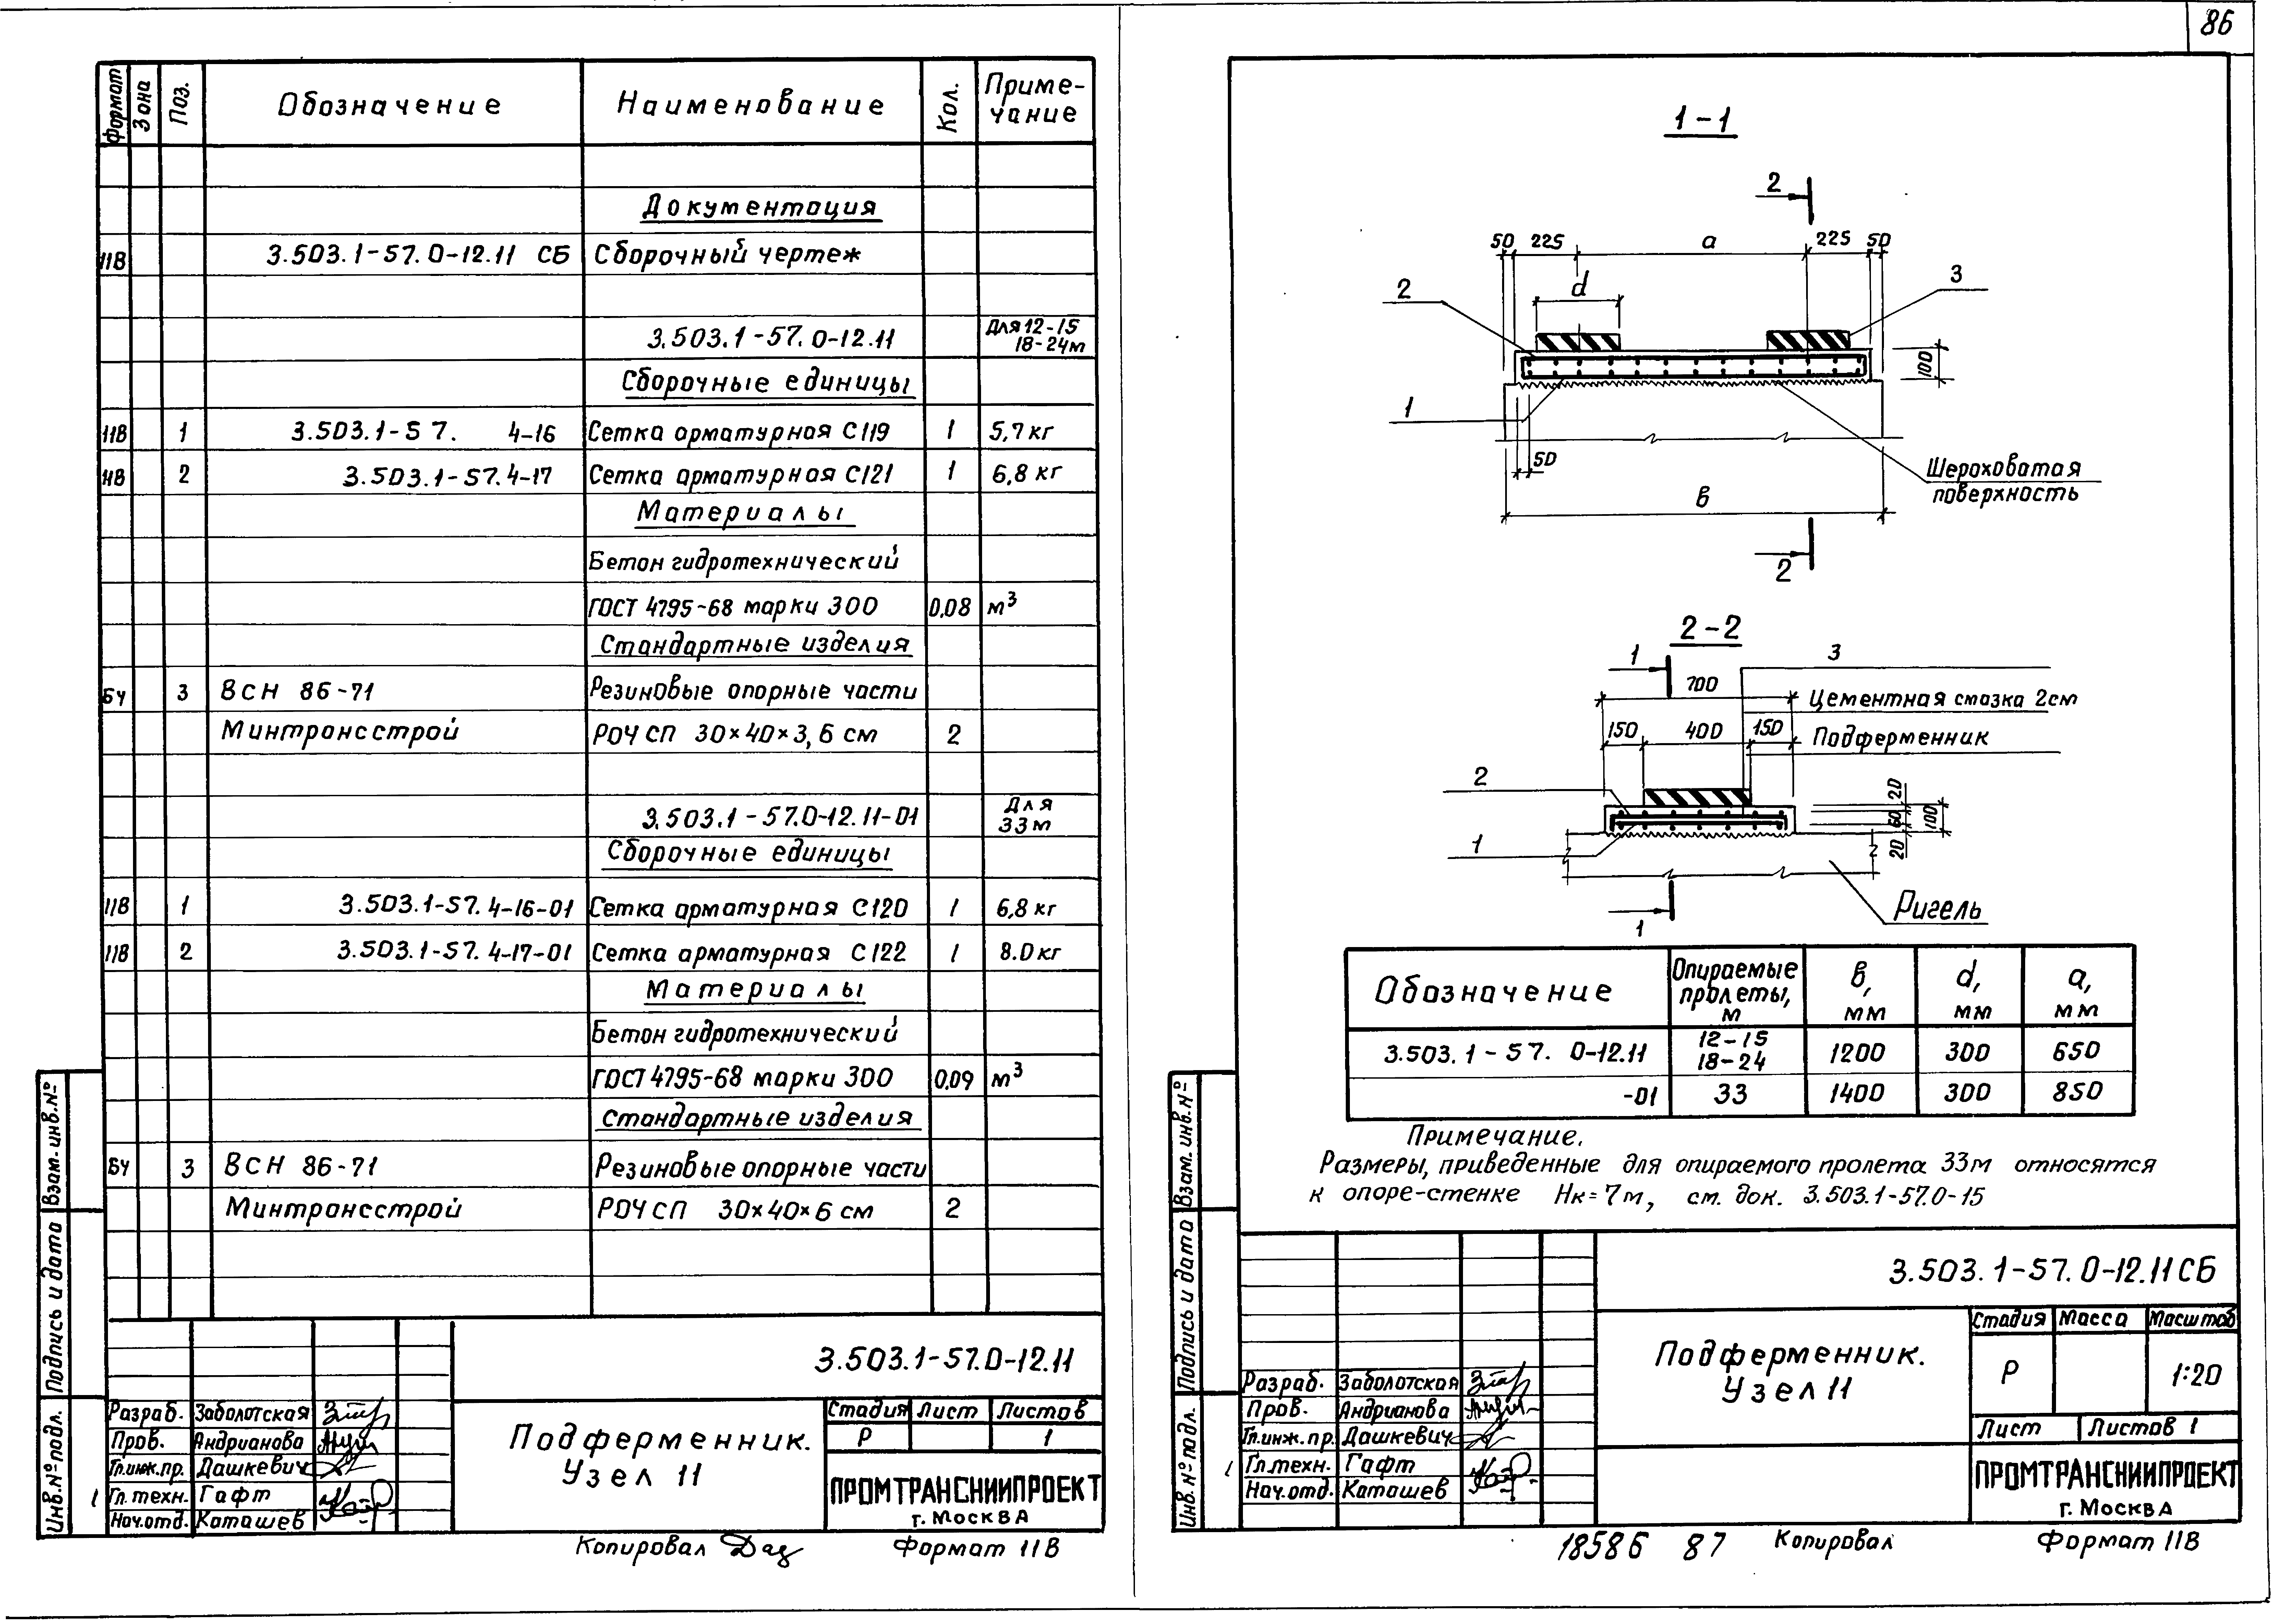 86
Формат Зона Поз. Обозначение Наименование Кол. Приме-
чание
Документация
11В 3.503.1-57.0-12.11 СБ Сборочный чертеж
3.503.1-57.0-12.11 Для 12-15
18-24м
Сборочные единицы
11В 1 3.503.1-57. 4-16 Сетка арматурная С119 1 5,7 кг
11В 2 3.503.1-57.4-17 Сетка арматурная С121 1 6,8 кг
Материалы
Бетон гидротехнический
ГОСТ 4795-68 марки 300 0,08 м³
Стандартные изделия
БЧ 3 ВСН 86-71 Резиновые опорные части
Минтрансстрой РОЧ СП 30×40×3,6 см 2
3.503.1-57.0-12.11-01 Для
33м
Сборочные единицы
11В 1 3.503.1-57.4-16-01 Сетка арматурная С120 1 6,8 кг
11В 2 3.503.1-57.4-17-01 Сетка арматурная С122 1 8.0кг
Материалы
Бетон гидротехнический
ГОСТ 4795-68 марки 300 0,09 м³
Стандартные изделия
БЧ 3 ВСН 86-71 Резиновые опорные части
Минтрансстрой РОЧ СП 30×40×6 см 2
Взам. инв.№
Подпись и дата
Инв.№ подл.
3.503.1-57.0-12.11
Разраб. Заболотская
Пров. Андрианова
Гл.инж.пр. Дашкевич
Гл. техн. Гафт
Нач.отд. Каташев
Подферменник.
Узел 11
Стадия Лист Листов
Р 1
ПРОМТРАНСНИИПРОЕКТ
г. Москва
Копировал Формат 11В
1-1
2
50 225 а 225 50
d
2 3
100
1
50
Шероховатая
поверхность
в
2
2-2
1 3
700
Цементная смазка 2см
150 400 150
Подферменник
2
20
60
20
100
1
Ригель
1
Обозначение Опираемые
пролеты,
м в,
мм d,
мм а,
мм
3.503.1-57. 0-12.11 12-15
18-24 1200 300 650
-01 33 1400 300 850
Примечание.
Размеры, приведенные для опираемого пролета 33м относятся
к опоре-стенке Нк=7м, см. док. 3.503.1-57.0-15
Взам. инв.№
Подпись и дата
Инв.№ подл.
3.503.1-57.0-12.11СБ
Разраб. Заболотская
Пров. Андрианова
Гл.инж.пр. Дашкевич
Гл.техн. Гафт
Нач.отд. Каташев
Подферменник.
Узел 11
Стадия Масса Масштаб
Р 1:20
Лист Листов 1
ПРОМТРАНСНИИПРОЕКТ
г. Москва
18586 87 Копировал Формат 11В